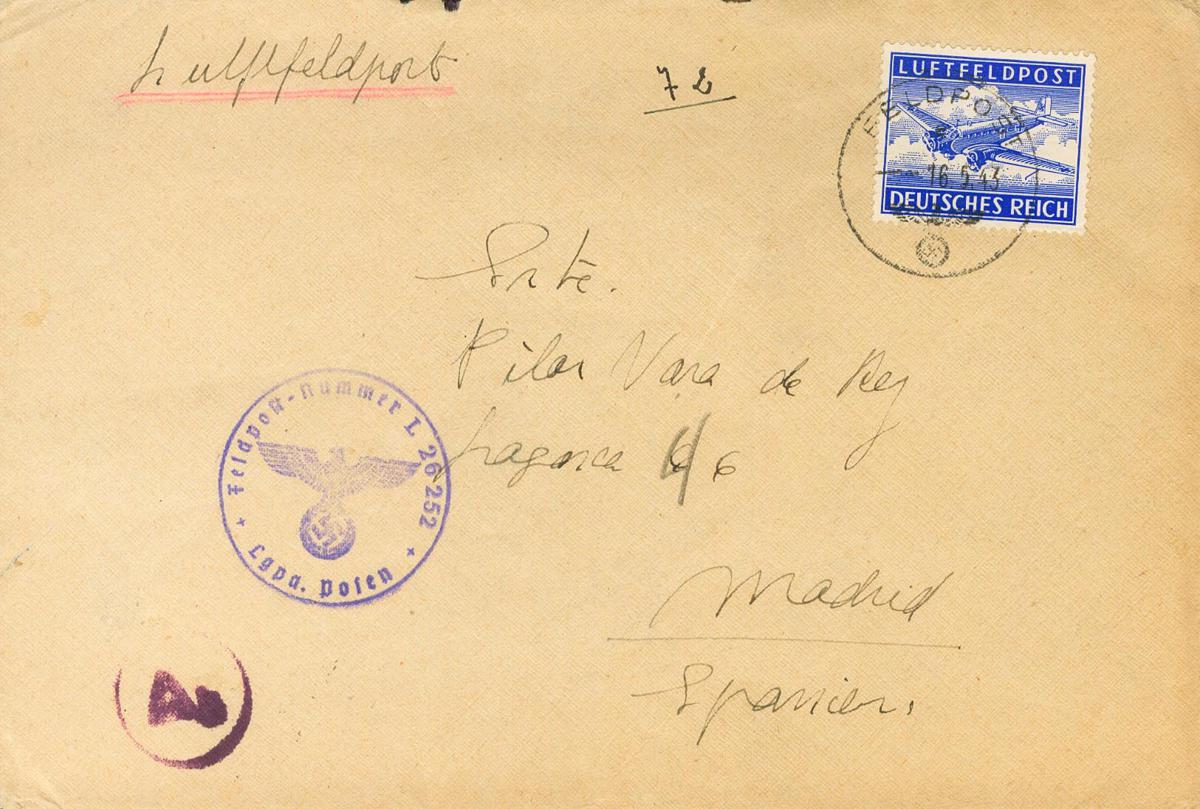 Luftfeldpost
72
LUFTFELDPOST
DEUTSCHES REICH
FELDPOST
16.5.43
Srta.
Pilar Vara de Rey
Lagasca 66
Madrid
Spanien.
Feldpost-Nummer L 26 252
Lgpa. Posen